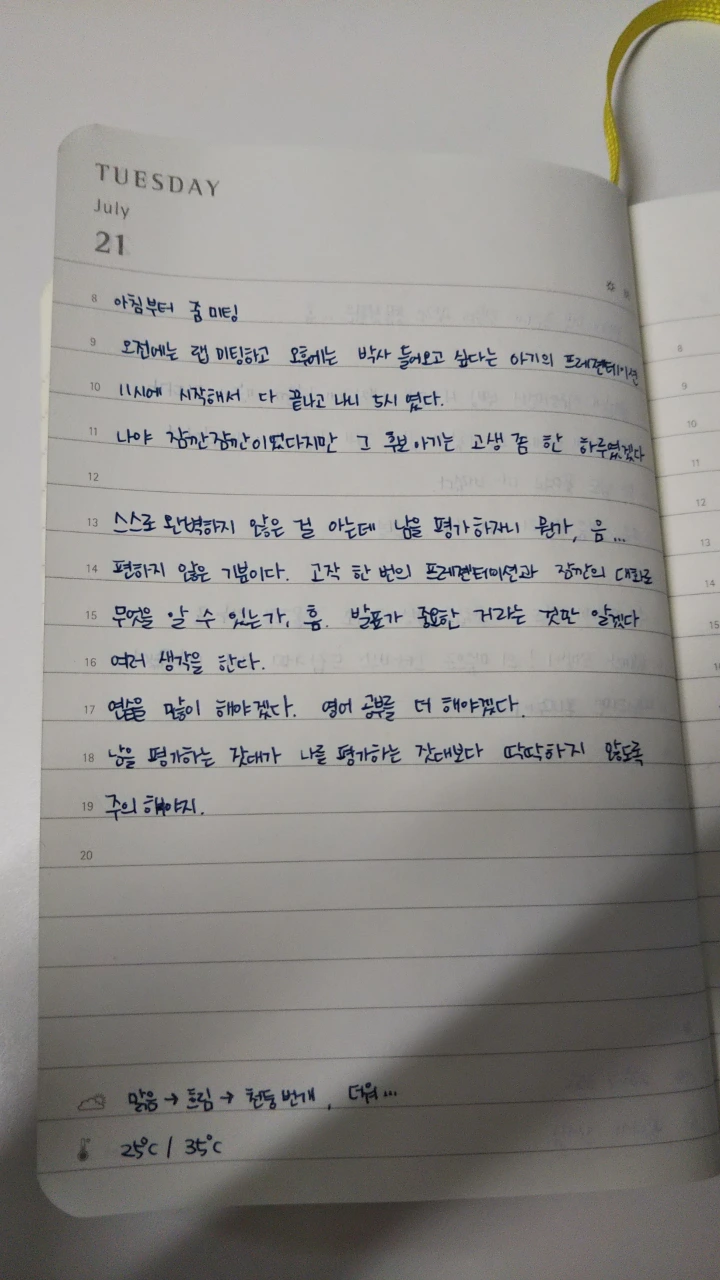 TUESDAY
July
21
8 아침부터 줌 미팅
9 오전에는 랩 미팅하고 오후에는 박사 들어오고 싶다는 아기의 프레젠테이션
10 11시에 시작해서 다 끝나고 나니 5시 였다.
11 나야 잠깐잠깐이었다지만 그 후보 아기는 고생 좀 한 하루였겠다
12
13 스스로 완벽하지 않은 걸 아는데 남을 평가하자니 뭔가, 음...
14 편하지 않은 기분이다. 고작 한 번의 프레젠테이션과 잠깐의 대화로
15 무엇을 알 수 있는가, 흠. 발표가 중요한 거라는 것만 알겠다
16 여러 생각을 한다.
17 연습을 많이 해야겠다. 영어 공부를 더 해야겠다.
18 남을 평가하는 잣대가 나를 평가하는 잣대보다 딱딱하지 않도록
19 주의해야지.
20
맑음 → 흐림 → 천둥번개, 더워...
25°C / 35°C
8
9
10
11
12
13
14
15
16
17
18